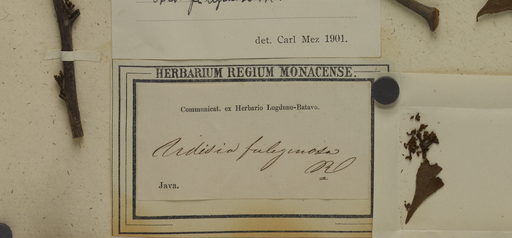 det. Carl Mez 1901.
HERBARIUM REGIUM MONACENSE.
Communicat. ex Herbario Lugduno-Batavo.
Ardisia fuliginosa
Bl
Java.